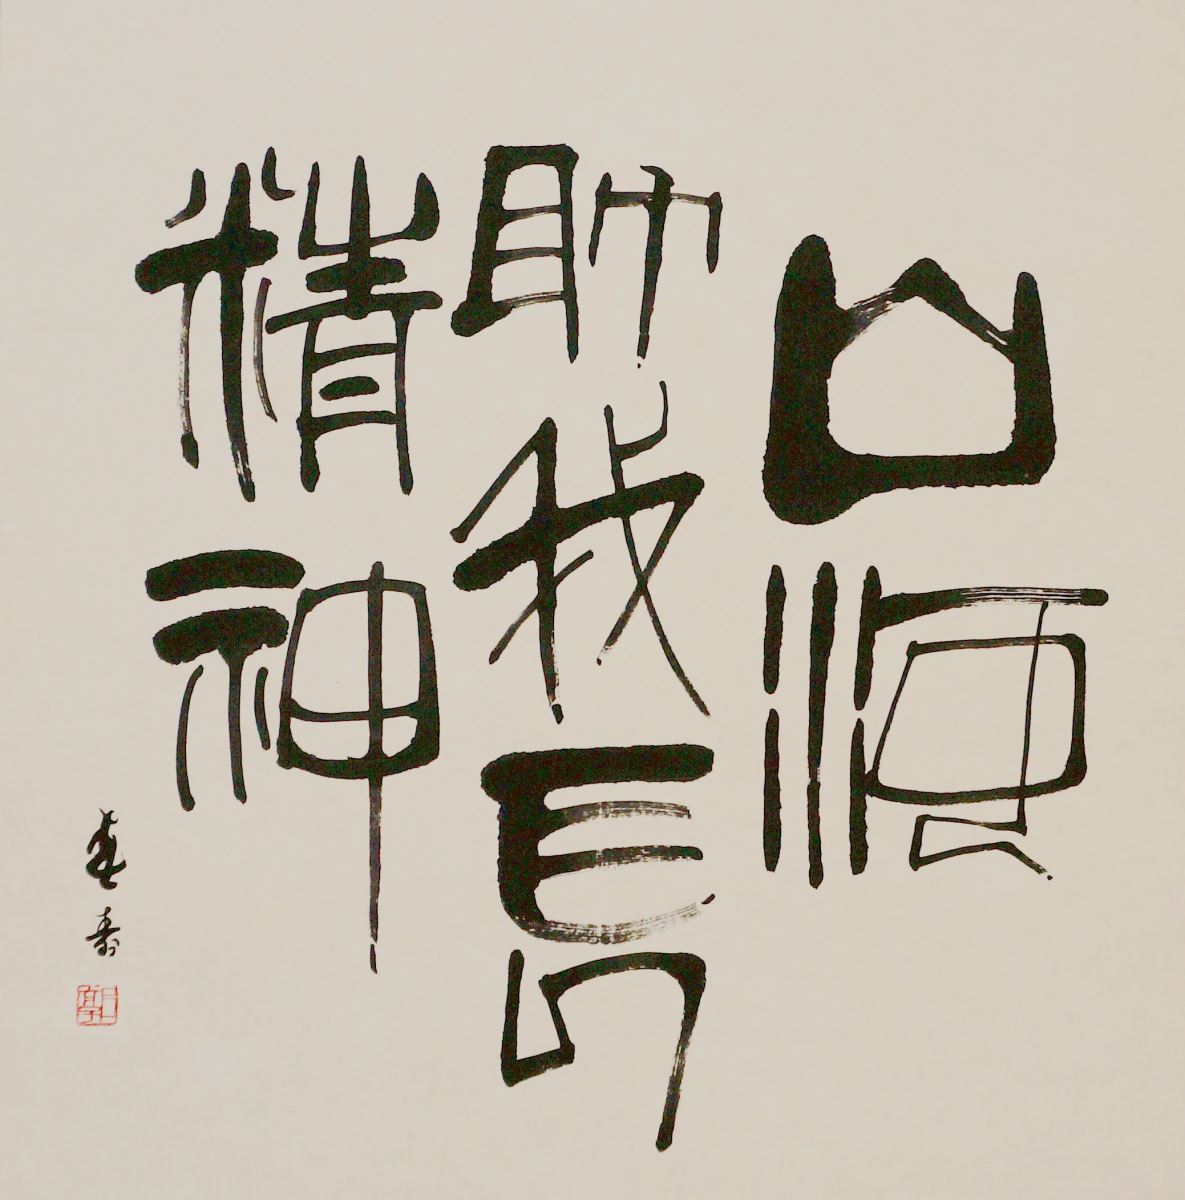 山河
助我長
精神
寿